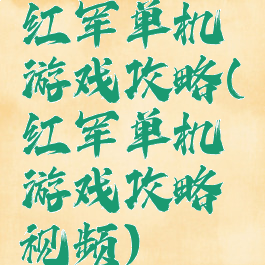 红军单机
游戏攻略(
红军单机
游戏攻略
视频)